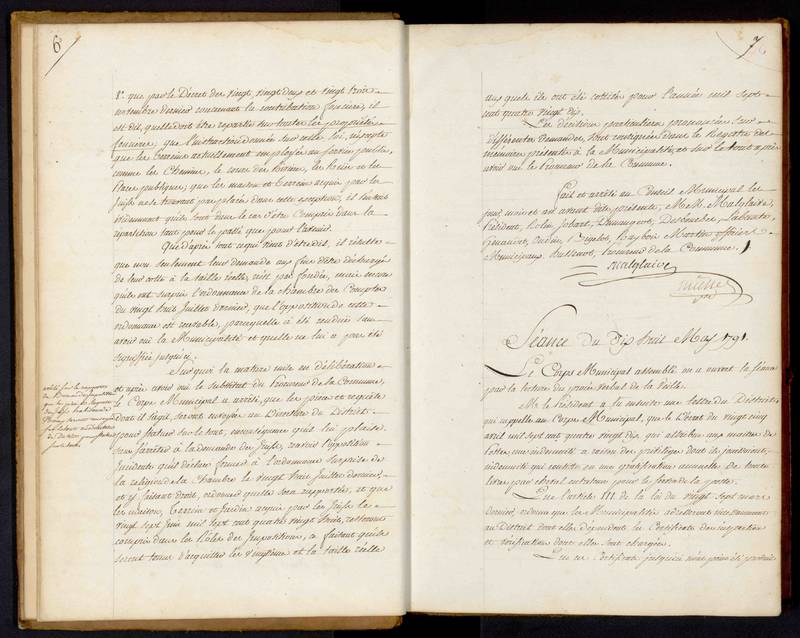 6
1° que par le Décret des vingt, vingt deux et vingt trois
novembre dernier concernant la contribution foncière, il
est dit, quelle doit être repartie sur toutes les propriétés
foncieres, que l'instruction donnée sur cette loi, n'excepte
que les terreins actuellement employés au service public,
comme les Chemins, le cours des rivieres, les Rües et les
Places publiques, que les maisons et terreins acquis par les
Juifs ne se trouvant pas placés dans cette exception, il s'ensuit
évidemment qu'ils sont dans le cas d'être Compris dans la
répartition tant pour le passé que pour l'avenir.
Que d'après tout ce qui vient d'être dit, il résulte
que non seulement leur demande aux fins d'être déchargés
de leur cotte à la taille réelle, n'est pas fondée, mais encore
qu'ils ont surpris l'ordonnance de la chambre des Comptes
du vingt huit Juillet dernier, que l'opposition de cette
ordonnance est recevable, parcequelle a été rendue sans
avoir oui la Municipalité et quelle ne lui a pas été
signifiée jusqu'ici.
Surquoi la matiere mise en délibération
et après avoir oui le substitut du Procureur de la Commune,
le Corps Municipal a arrêté, que les pieces et requête
dont il s'agit, seront envoyées au Directoire du District
pour statuer sur le tout, en conséquence qu'il lui plaise
sans s'arrêter à la demande des Juifs, recevoir l'opposition
incidente qu'il déclare former à l'ordonnance surprise de
la religion de la Chambre le vingt huit Juillet dernier,
et y faisant droit, ordonner quelle sera rapportée, et que
les maisons, terrein et Jardin acquis par les Juifs le
vingt sept Juin mil sept cent quatre vingt huit, resteront
compris dans les Rôles des Impositions, à l'effet de quoi ils
seront tenus d'acquitter les vingtiemes et la taille réelle
7
aux quels ils ont été cottisés pour l'année mil sept
cent quatre vingt dix.
Les décisions particulieres prononcées sur
différentes demandes, sont consignées dans le Registre des
mémoires présentés à la Municipalité, et sur le tout après
avoir oui le Procureur de la Commune.
Fait et arrêté au Conseil Municipal les
jour, mois et an avant dits, présents, M.M. Malglaive,
Président, Rolin, Jobart, Dumangeot,
Municipaux, Procureur de la Commune.
Malglaive
Séance Du Dix huit May 1791.
Le Corps Municipal assemblé on a ouvert la séance
par la lecture du procès verbal de la veille.
M. le Président a lu ensuite une lettre du District
qui rappelle au Corps Municipal, que le Décret du vingt cinq
avril mil sept cent quatre vingt dix, qui attribue aux maîtres de
Postes, une indemnité à raison des privileges dont ils jouissoient,
indemnité qui consiste en une gratification annuelle de trente
livres par cheval entretenu pour le service de la poste.
Que l'article III de la loi du vingt sept mars
dernier, ordonne que les Municipalités adresseront incessamment
au District dont elles dépendent les Certificats des inspections
et vérifications dont elles sont chargées.
Que ces Certificats jusqu'ici n'ont point été produits